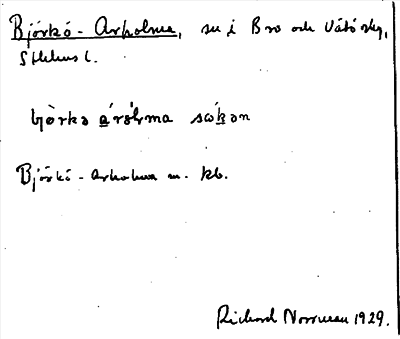 Björkö-Arholma, sn i Bro och Vätö skg,
Sthlms l.
bjö̀rkə á̱rólma sɷ́ḵən
Björkö-Arholma m. kb.
Richard Norrman 1929.